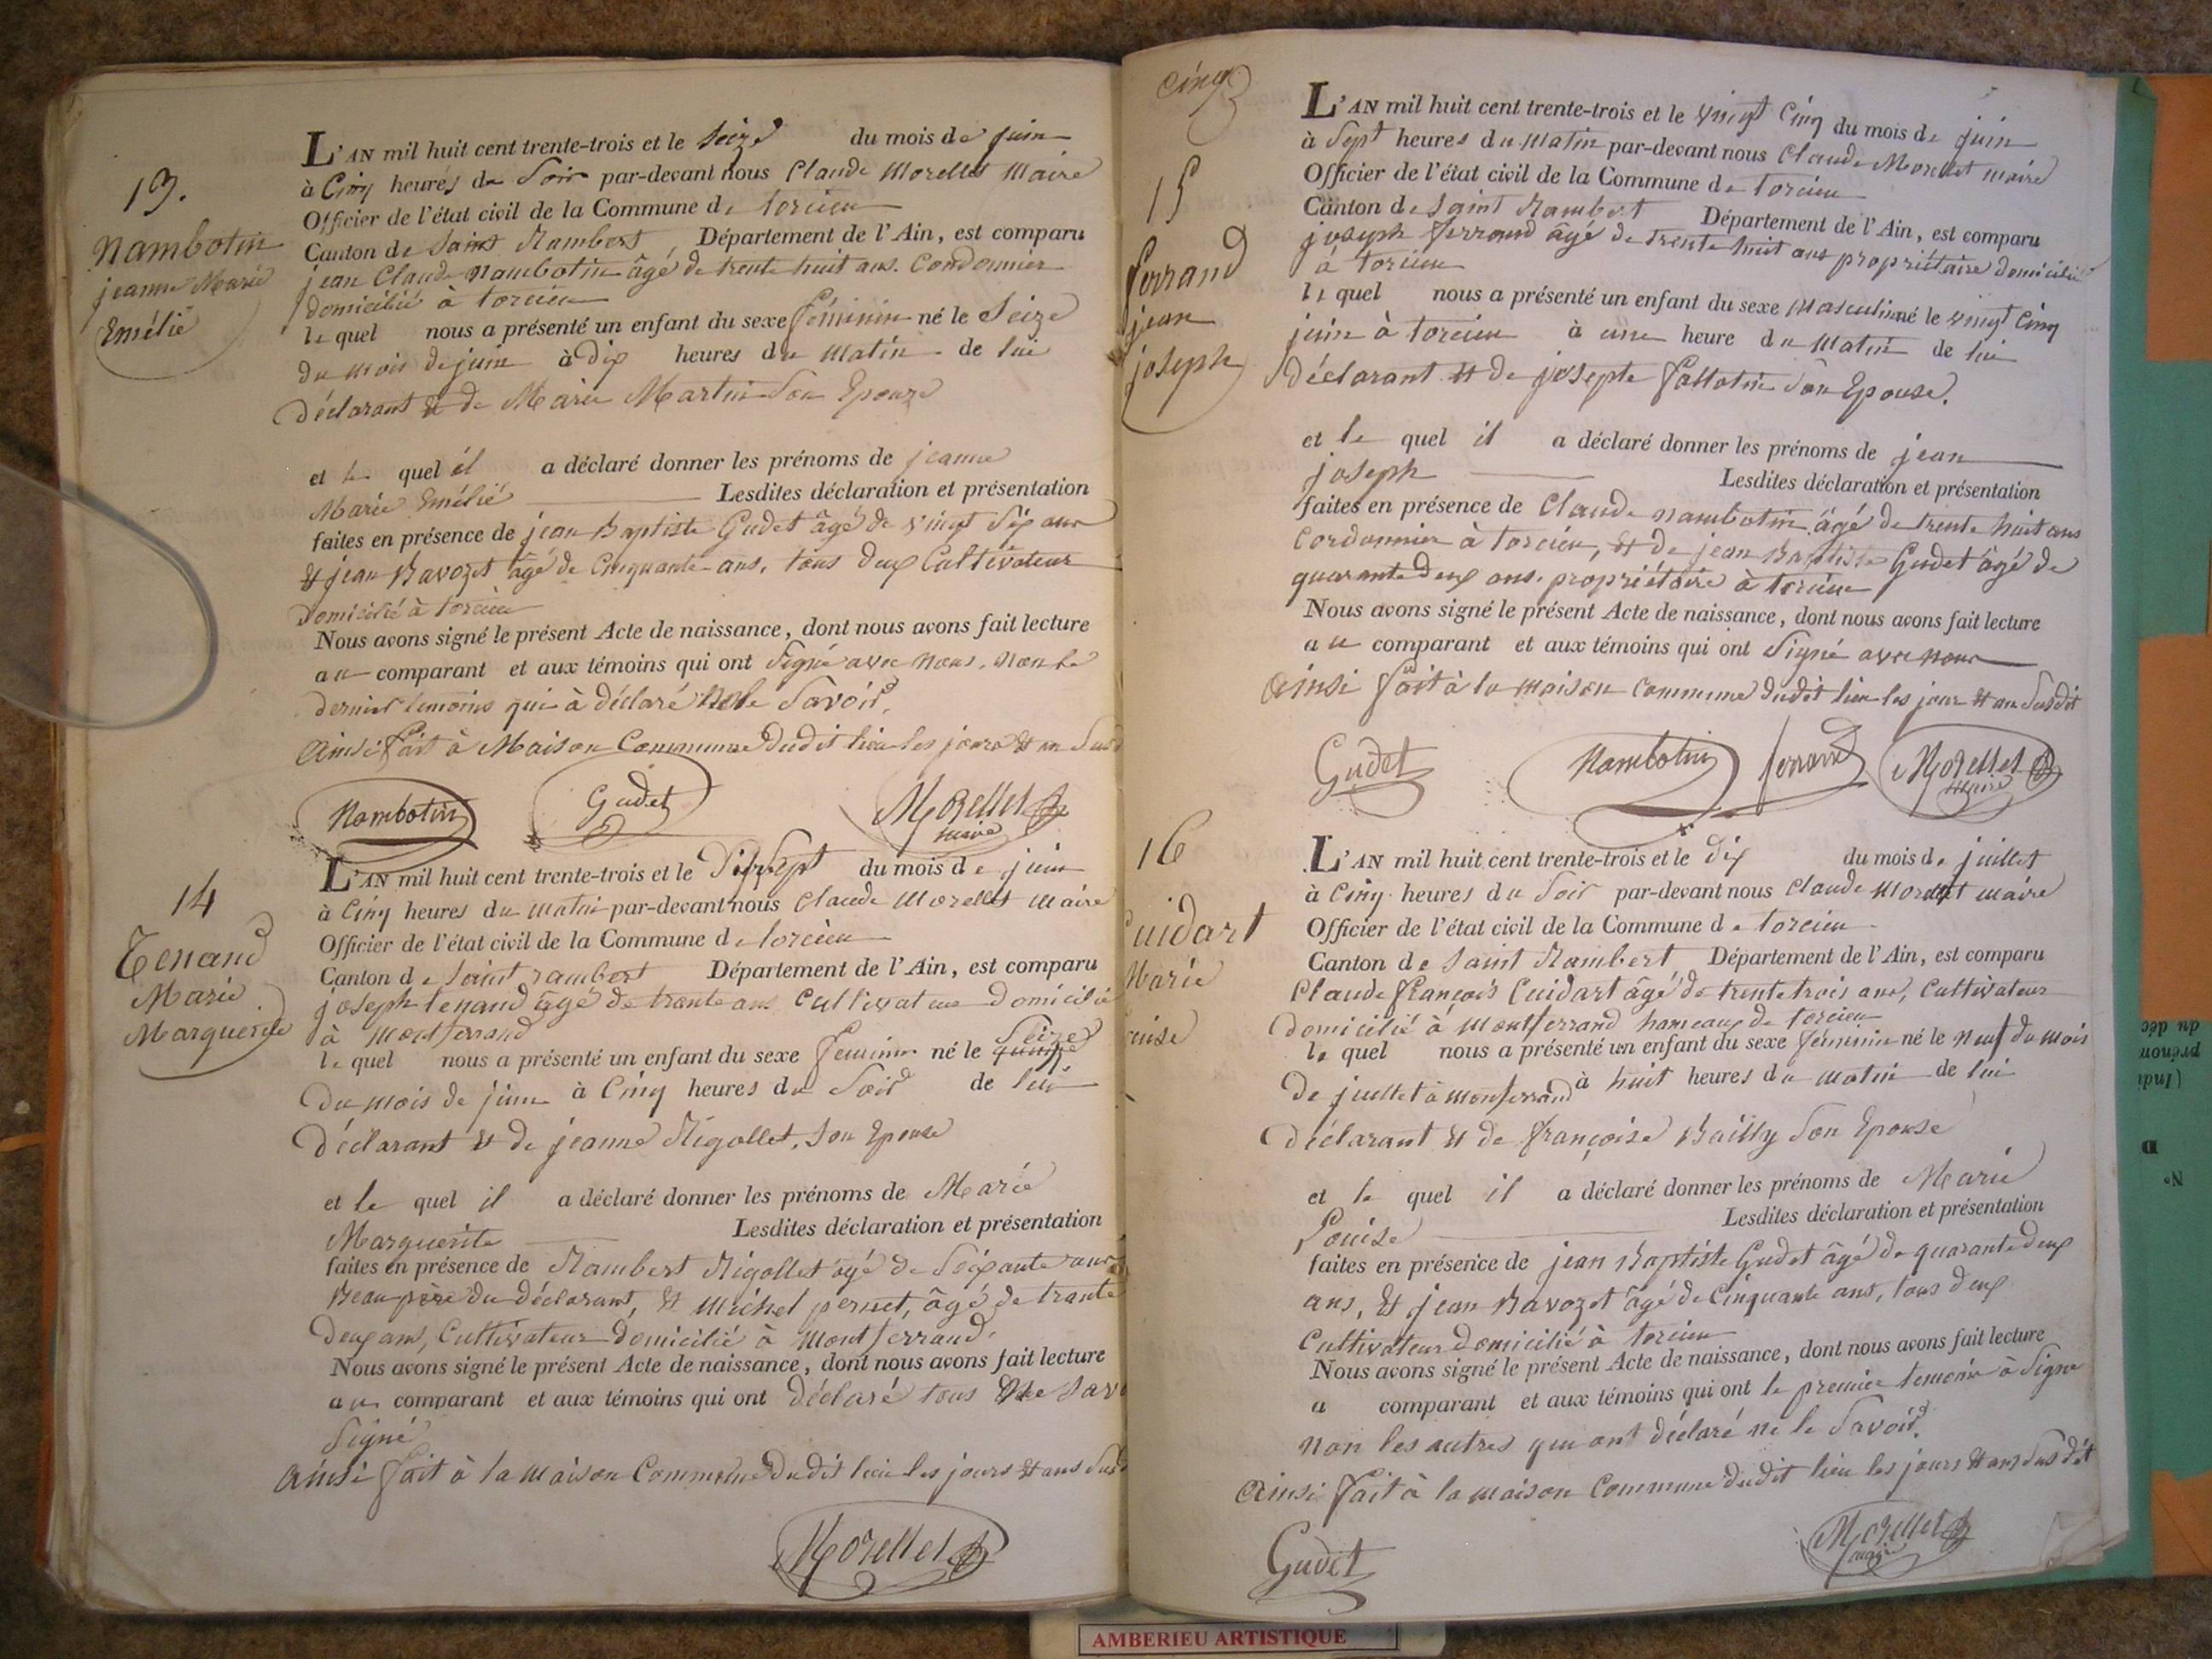 13.
Nambotin
jeanne Marie
Emélie
L'AN mil huit cent trente-trois et le Seize du mois de juin
à Cinq heures du Soir par-devant nous Claude Morellet Maire
Officier de l'état civil de la Commune de torcieu
Canton de Saint Rambert, Département de l'Ain, est comparu
jean Claude Nambotin âgé de trente huit ans. Cordonnier
domicilié à torcieu
le quel nous a présenté un enfant du sexe féminin né le Seize
du mois de juin à dix heures du matin de lui
Déclarant et de Marie Martin Son Epouze
et le quel il a déclaré donner les prénoms de jeanne
Marie Emélié Lesdites déclaration et présentation
faites en présence de jean Baptiste Gudet âgé de vingt Six ans
et jean Ravozet âgé de Cinquante ans, tous deux Cultivateur
Domicilié à torcieu
Nous avons signé le présent Acte de naissance, dont nous avons fait lecture
au comparant et aux témoins qui ont Signé avec Nous. Non le
dernier temoins qui à déclaré ne le Savoir.
Ainsi fait à Maison Commune dudit lieu les jours et an Sus
Nambotin Gudet Morellet maire
14
Tenand
Marie
Marguerite
L'AN mil huit cent trente-trois et le Dix Sept du mois de juin
à Cinq heures du matin par-devant nous Claude Morellet Maire
Officier de l'état civil de la Commune de torcieu
Canton de Saint rambert Département de l'Ain, est comparu
joseph tenand âgé de trante ans Cultivateur Domicilié
à Montferrand
Seize
le quel nous a présenté un enfant du sexe feminin né le quinze
Du mois de juin à Cinq heures du Soir de lui
Déclarant et de jeanne Rigollet, Son Epouse
et le quel il a déclaré donner les prénoms de Marie
Marguerite Lesdites déclaration et présentation
faites en présence de Rambert Rigollet âgé de Soixante ans
Beau père du déclarant, et Michel pernet, âgé de trante
Deux ans, Cultivateur domicilié à Montferrand.
Nous avons signé le présent Acte de naissance, dont nous avons fait lecture
au comparant et aux témoins qui ont déclaré tous ne Sav
Signé
Ainsi fait à la Maison Commune Dudit lieu les jours et ans Sus
Morellet
Cinq
15
ferrand
jean
joseph
L'AN mil huit cent trente-trois et le vingt Cinq du mois de juin
à Sept heures du Matin par-devant nous Claude Morellet maire
Officier de l'état civil de la Commune de torcieu
Canton de Saint Rambert Département de l'Ain, est comparu
joseph ferrand âgé de trente huit ans propriétaire domicilié
à torcieu
le quel nous a présenté un enfant du sexe masculin né le vingt Cinq
juin à torcieu à une heure du Matin de lui
Déclarant et de josepte fallotin Son Epouse.
et le quel il a déclaré donner les prénoms de jean
joseph Lesdites déclaration et présentation
faites en présence de Claude nambotin âgé de trente huit ans
Cordonnier à torcieu, et de jean Baptiste Gudet âgé de
quarante deux ans. propriétaire à torcieu
Nous avons signé le présent Acte de naissance, dont nous avons fait lecture
au comparant et aux témoins qui ont Signé avec nous
Ainsi fait à la maison commune dudit lieu les jour et an Susdit
Gudet Nambotin ferrand Morellet maire
16
uidart
Marie
ouise
L'AN mil huit cent trente-trois et le dix du mois de juillet
à Cinq heures du Soir par-devant nous Claude Morellet maire
Officier de l'état civil de la Commune de torcieu
Canton de Saint Rambert Département de l'Ain, est comparu
Claude François Cuidart âgé de trente trois ans, Cultivateur
Domicilié à Montferrand hameau de torcieu
le quel nous a présenté un enfant du sexe féminin né le Neuf du mois
De juillet à Montferrand à huit heures du matin de lui
Déclarant et de françoise Bailly Son Epouse
et le quel il a déclaré donner les prénoms de Marie
Louise Lesdites déclaration et présentation
faites en présence de jean Baptiste Gudet âgé de quarante deux
ans, et jean Ravozet âgé de Cinquante ans, tous deux
Cultivateur Domicilié à torcieu
Nous avons signé le présent Acte de naissance, dont nous avons fait lecture
a comparant et aux témoins qui ont le premier temoin à Signé
non les autres qui ont déclaré ne le Savoir.
Ainsi fait à la maison Commune dudit lieu les jours et ans Sus dit
Gudet Morellet maire
du déc
prénom
(Indi
D
N°
AMBERIEU ARTISTIQUE